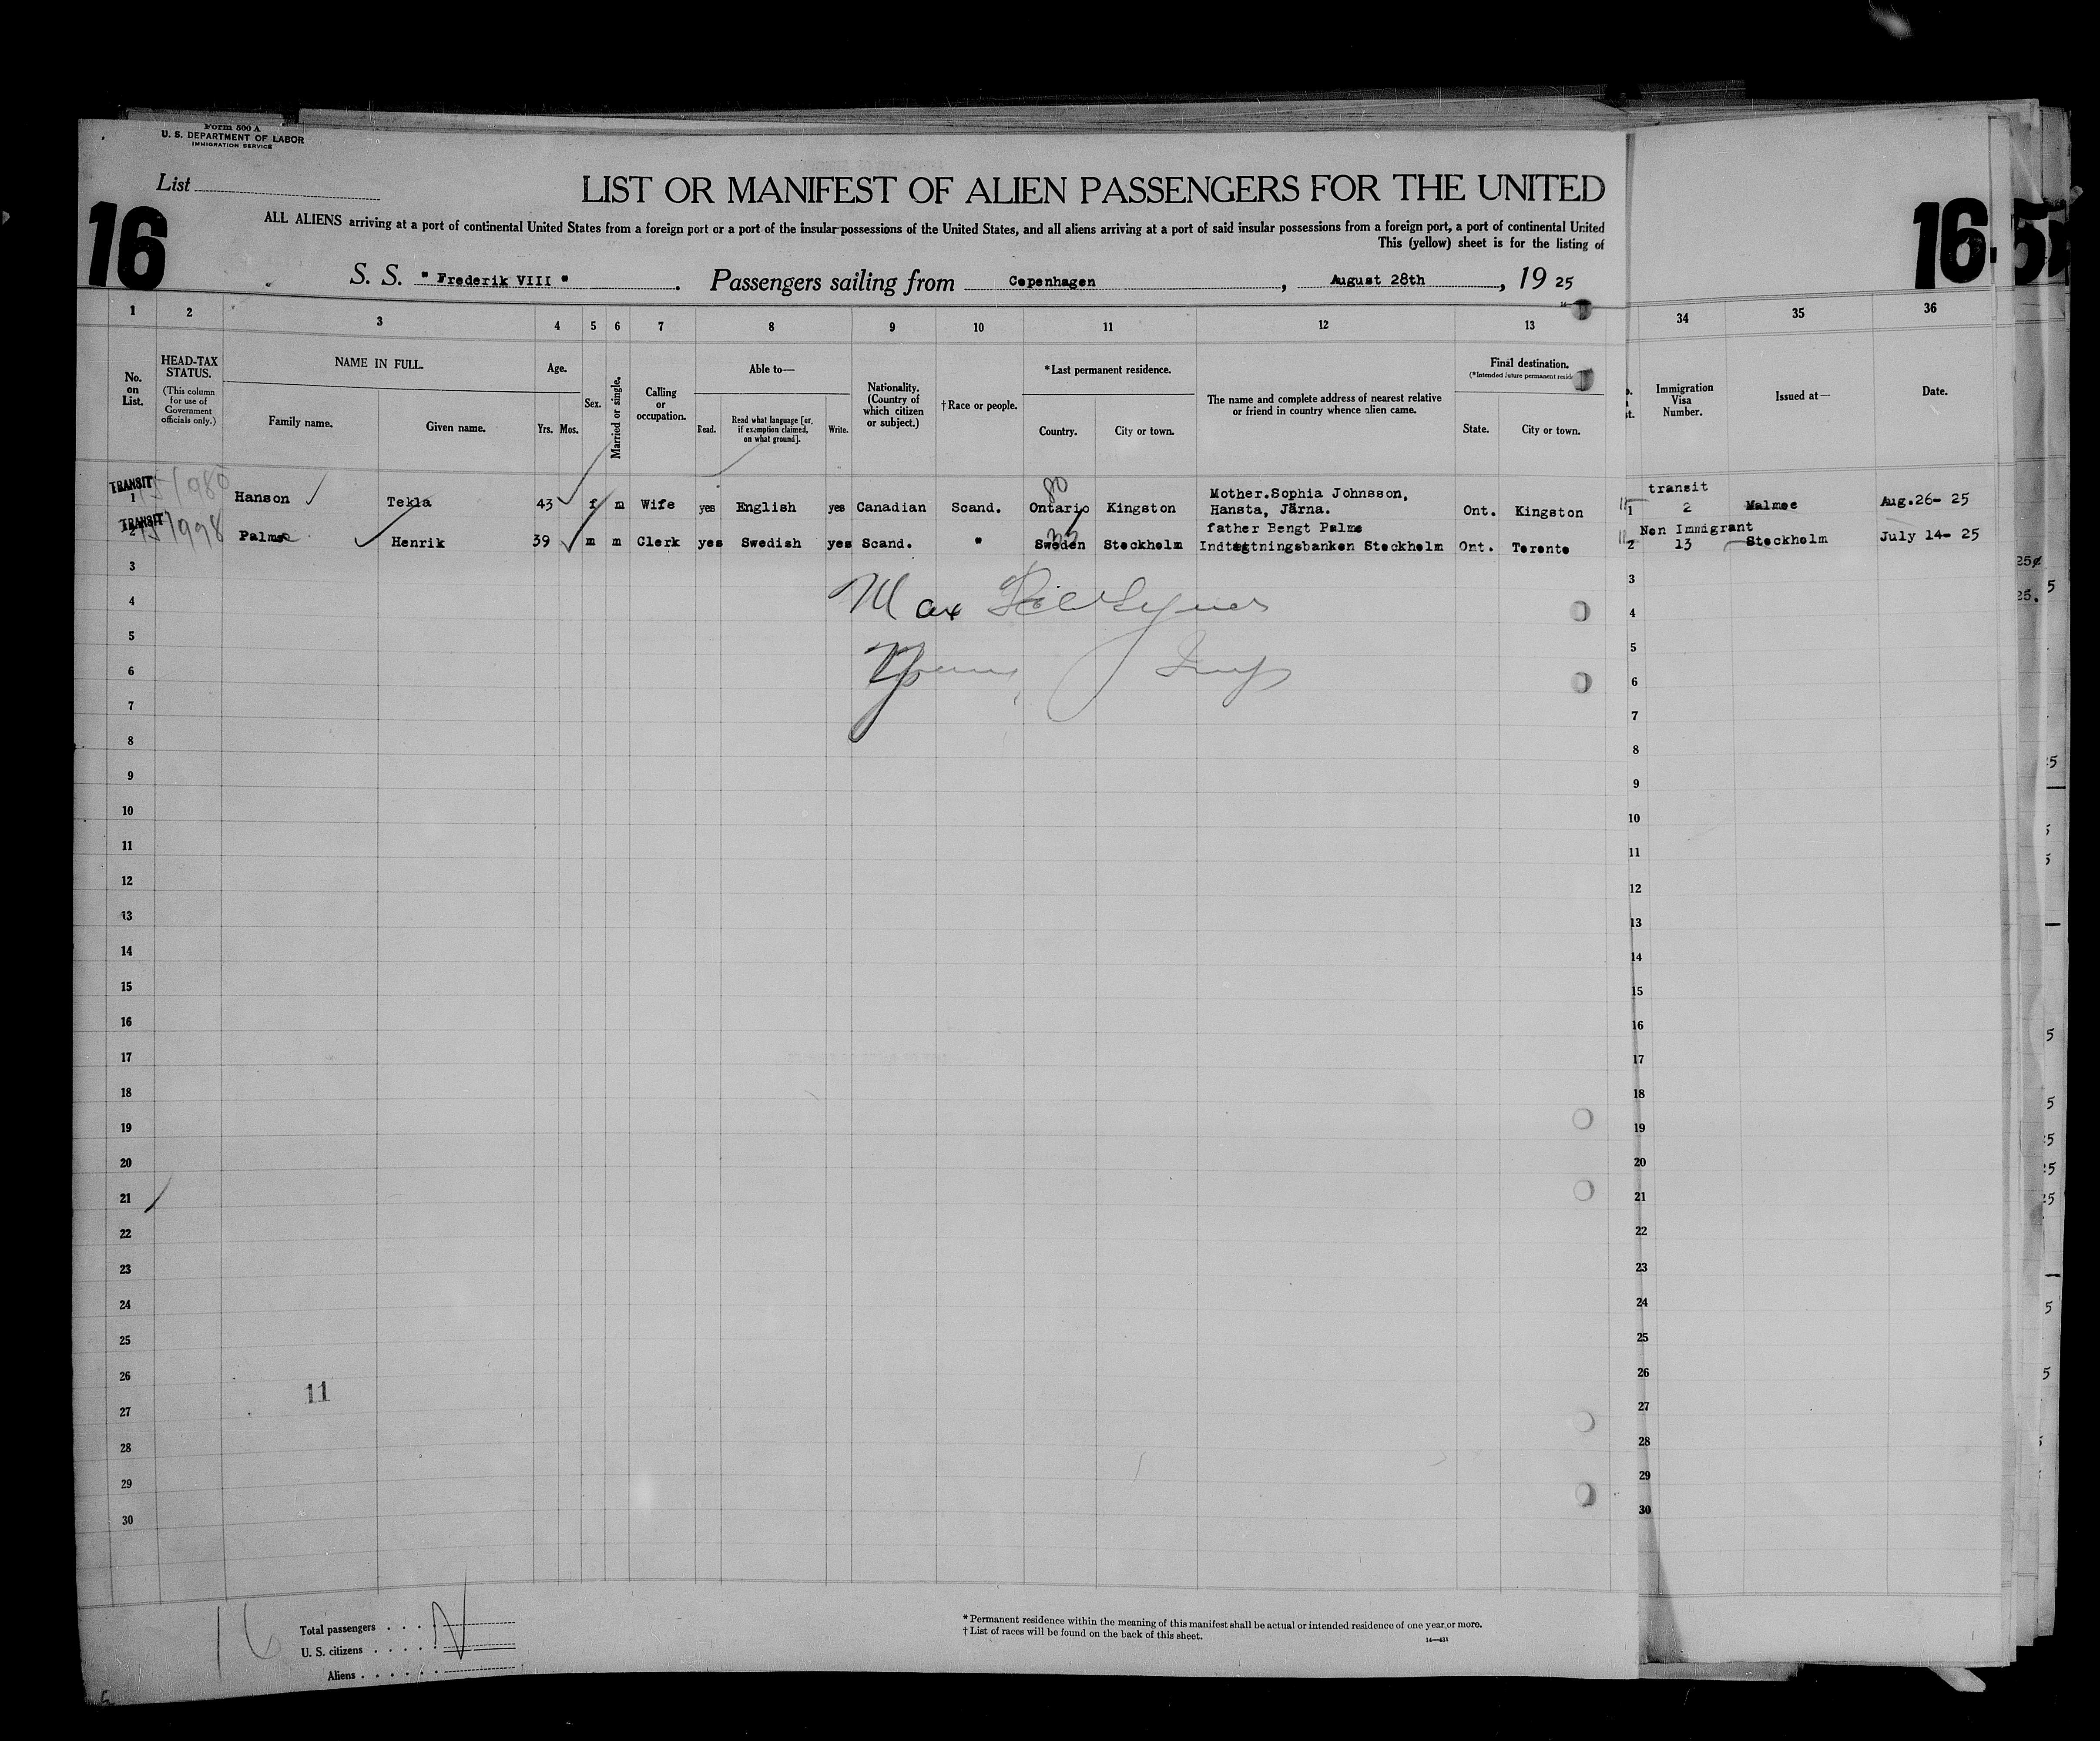 Form 500 A
U. S. DEPARTMENT OF LABOR
IMMIGRATION SERVICE
List
16
LIST OR MANIFEST OF ALIEN PASSENGERS FOR THE UNITED
ALL ALIENS arriving at a port of continental United States from a foreign port or a port of the insular possessions of the United States, and all aliens arriving at a port of said insular possessions from a foreign port, a port of continental United
This (yellow) sheet is for the listing of
S. S. " Frederik VIII " . Passengers sailing from Copenhagen , August 28th , 19 25
16 5
1 2 3 4 5 6 7 8 9 10 11 12 13 34 35 36
No. on List.
HEAD-TAX STATUS.
(This column for use of Government officials only.)
NAME IN FULL.
Family name. Given name.
Age.
Yrs. Mos.
Sex.
Married or single.
Calling or occupation.
Able to—
Read. Read what language [or, if exemption claimed, on what ground]. Write.
Nationality. (Country of which citizen or subject.)
†Race or people.
*Last permanent residence.
Country. City or town.
The name and complete address of nearest relative or friend in country whence alien came.
Final destination.
(*Intended future permanent resid
State. City or town.
Immigration Visa Number.
Issued at—
Date.
TRANSIT 1 Hanson Tekla 43 f m Wife yes English yes Canadian Scand. Ontario Kingston Mother.Sophia Johnsson, Hansta, Järna. Ont. Kingston 1 transit 2 Malmoe Aug.26- 25
80
TRANSIT 2 Palme Henrik 39 m m Clerk yes Swedish yes Scand. " Sweden Stockholm father Bengt Palme Indtægtningsbanken Stockholm Ont. Toronto 2 Non Immigrant 13 Stockholm July 14- 25
3 3
Max
4 4
5 5
6 6
7 7
8 8
9 9
10 10
11 11
12 12
13 13
14 14
15 15
16 16
17 17
18 18
19 19
20 20
21 21
22 22
23 23
24 24
25 25
26 26
11
27 27
28 28
29 29
30 30
16
Total passengers
U. S. citizens
Aliens
* Permanent residence within the meaning of this manifest shall be actual or intended residence of one year or more.
† List of races will be found on the back of this sheet.
14—431